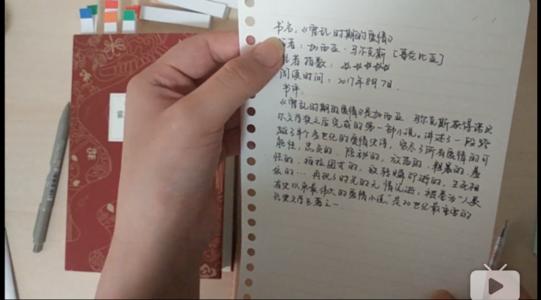 书名:《霍乱时期的爱情》
著:加西亚·马尔克斯 [哥伦比亚]
推荐指数:
阅读时间:2017年8月7日.
书评:
《霍乱时期的爱情》是加西亚·马尔克斯获得诺贝
尔文学奖之后完成的第一部小说。讲述了一段跨
越了半个多世纪的爱情史诗,穷尽了所有爱情的可
能性:忠贞的、隐秘的、放荡的、粗暴的、羞
怯的、柏拉图式的、
史以来最伟大的爱情小说,是20世纪最重要的
文学名著之一.